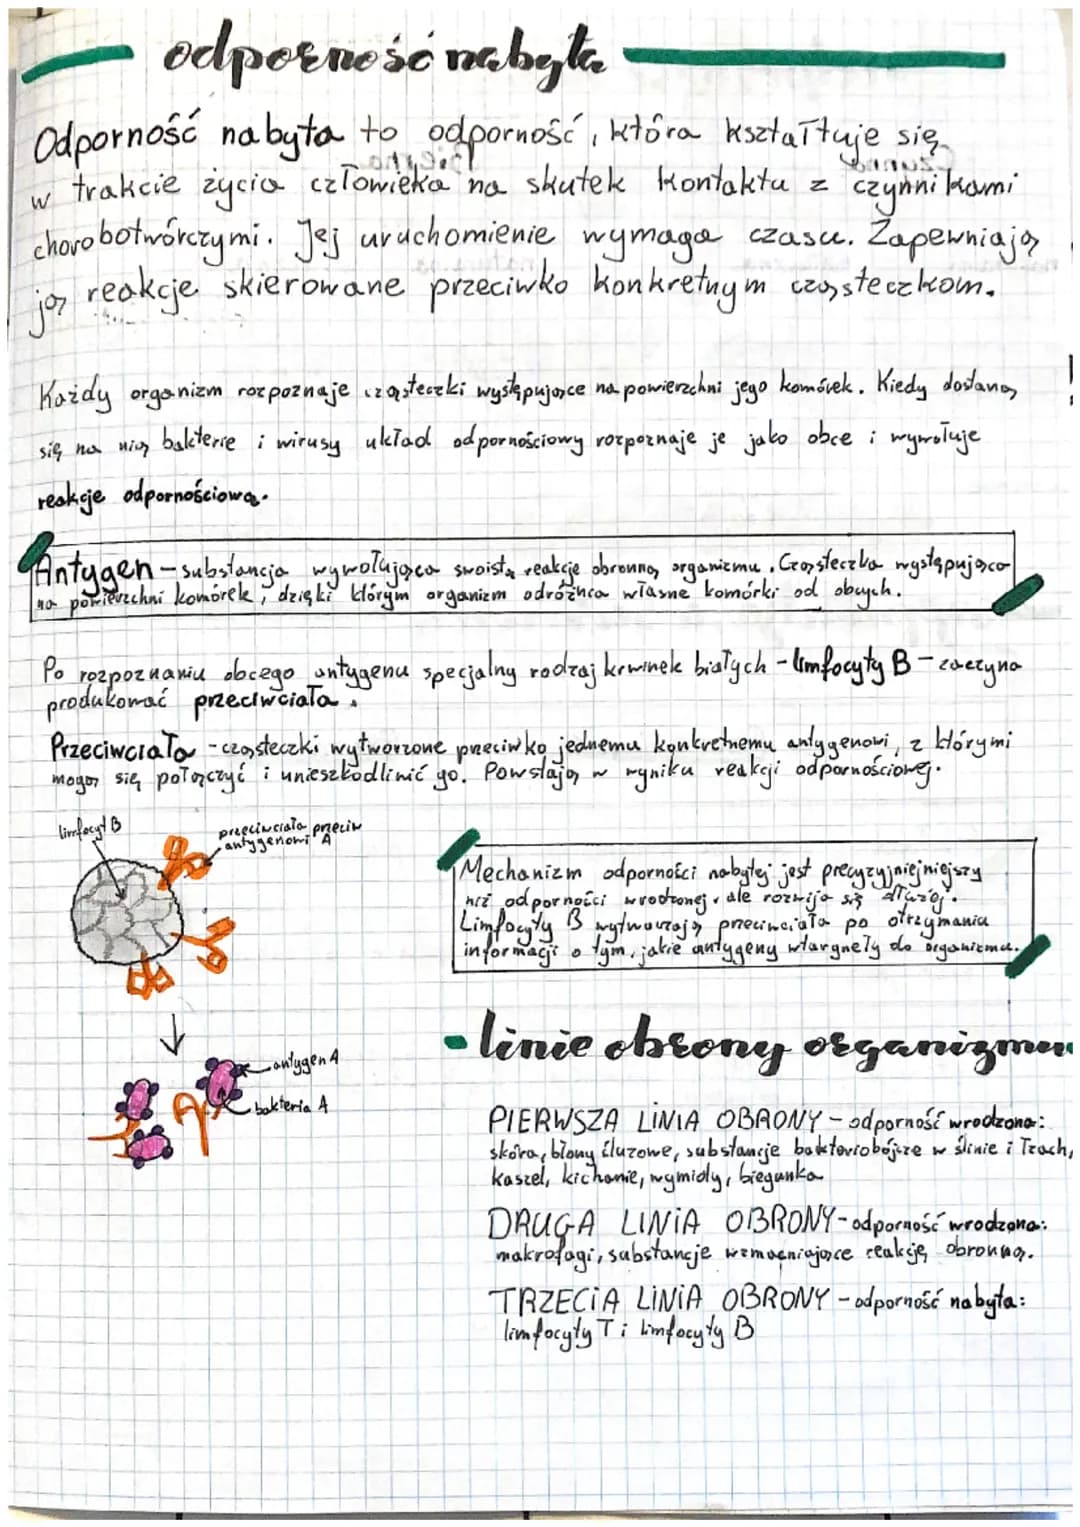 odporność nabyta
Odporność nabyta to odporność, która kształtuje się
w trakcie życia człowieka na skutek kontaktu z czynnikami
chorobotwórczymi. Jej uruchomienie wymaga czasu. Zapewniają
ją reakcje skierowane przeciwko konkretnym cząsteczkom.
Każdy organizm rozpoznaje cząsteczki występujące na powierzchni jego komórek. Kiedy dostaną
się na nią bakterie i wirusy układ odpornościowy rozpoznaje je jako obce i wywołuje
reakcje odpornościową.
Antygen - substancja wywołująca swoistą reakcje obronną organizmu. Cząsteczka występująca
na powierzchni komórek, dzięki którym organizm odróżnia własne komórki od obcych.
Po rozpoznaniu obcego antygenu specjalny rodzaj krwinek białych - limfocyty B - zaczyna
produkować przeciwciała.
Przeciwciała - cząsteczki wytworzone przeciwko jednemu konkretnemu antygenowi, z którymi
mogą się połączyć i unieszkodliwić go. Powstają w wyniku reakcji odpornościowej.
limfocyt B
przeciwciała przeciw
antygenowi A
Mechanizm odporności nabytej jest precyzyjniejniejszy
niż odporności wrodzonej, ale rozwija się dłużej.
Limfocyty B wytwarzają przeciwciała po otrzymaniu
informacji o tym, jakie antygeny wtargnęły do organizmu.
antygen A
bakteria A
- linie obrony organizmu
PIERWSZA LINIA OBRONY - odporność wrodzona:
skóra, błony śluzowe, substancje bakteriobójcze w ślinie i łzach,
kaszel, kichanie, wymioty, biegunka
DRUGA LINIA OBRONY - odporność wrodzona:
makrofagi, substancje wzmacniające reakcję obronną.
TRZECIA LINIA OBRONY - odporność nabyta:
limfocyty T i limfocyty B